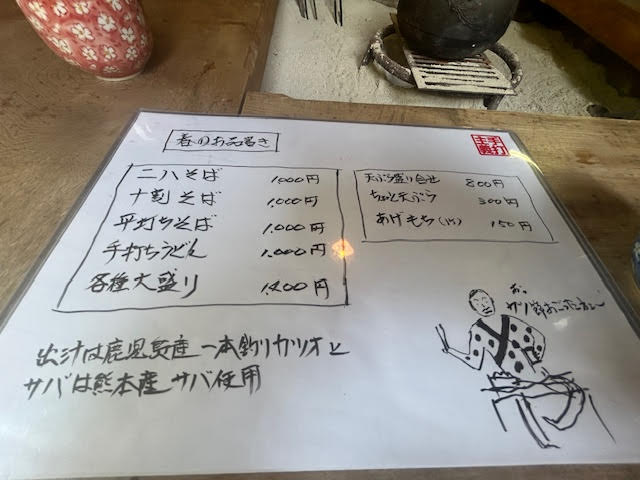 春のお品書き
手打
二八そば 1,000円
十割そば 1,000円
平打ちそば 1,000円
手打ちうどん 1,000円
各種大盛り 1,400円
天ぷら盛り合せ 800円
ちょっと天ぷら 300円
あげもち(1ヶ) 150円
出汁は鹿児島産一本釣りカツオと
サバは熊本産サバ使用